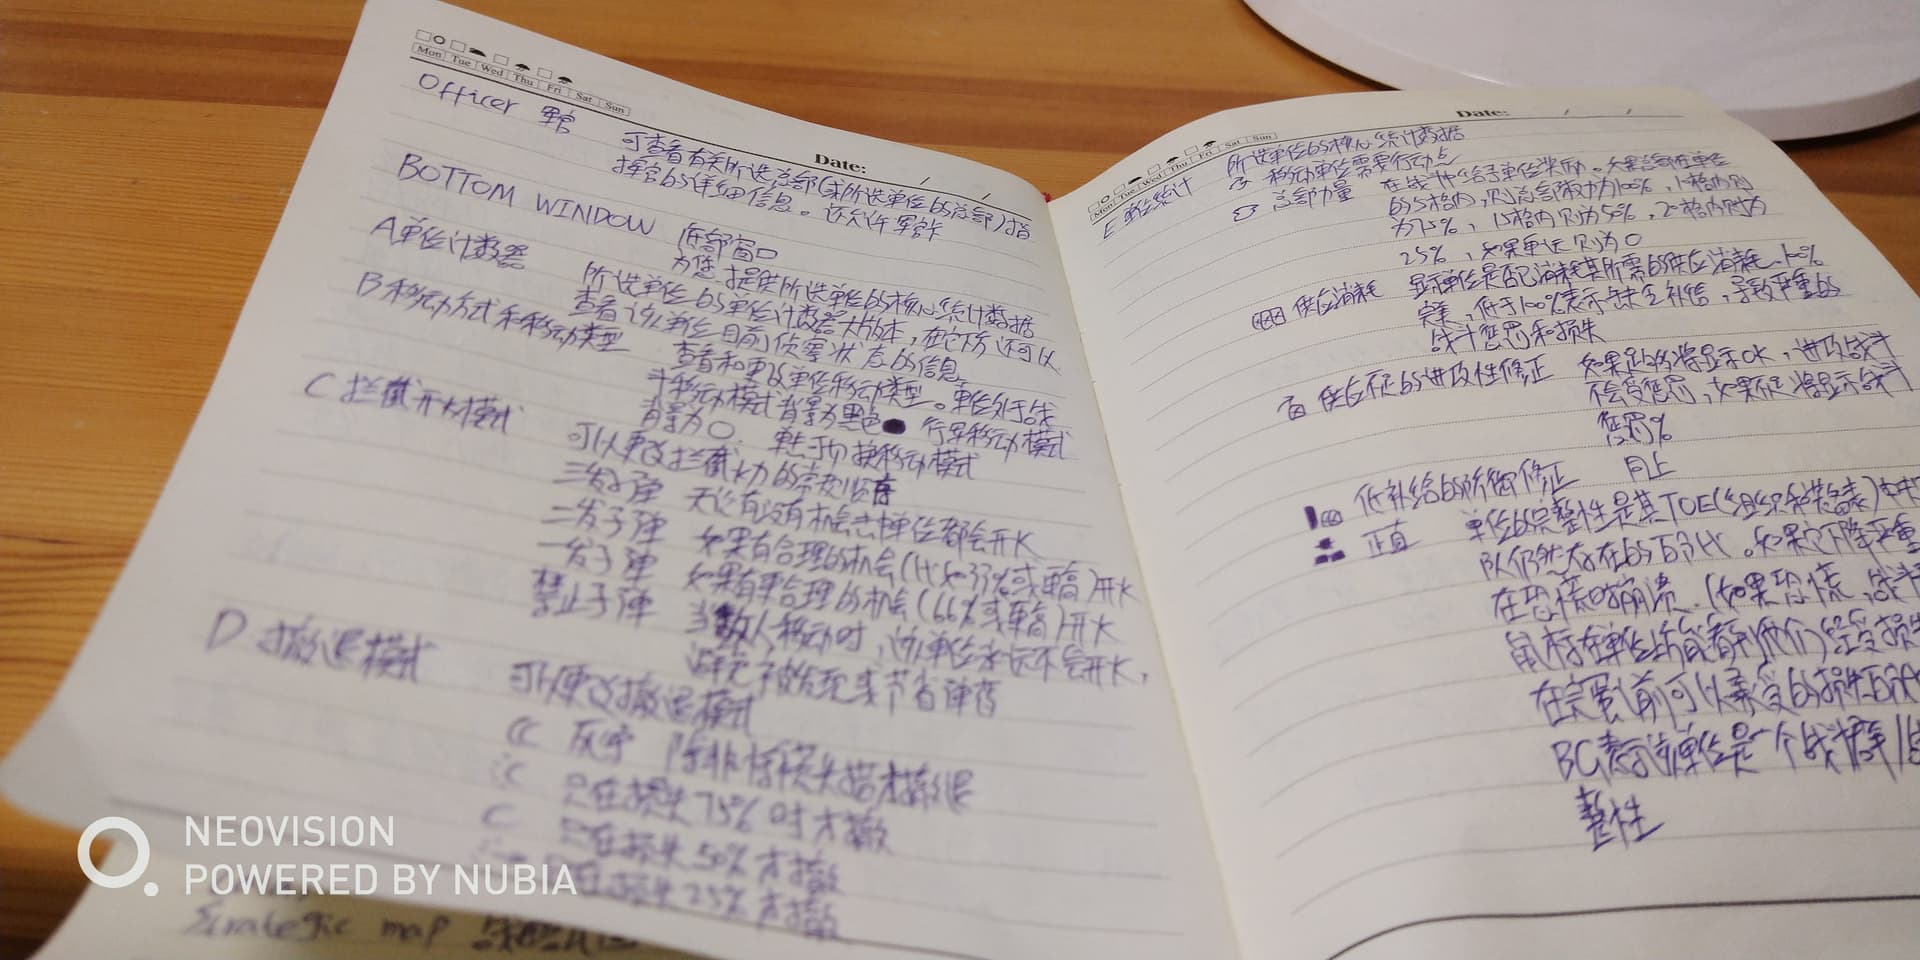 Mon Tue Wed Thu Fri Sat Sun
Date: / /
Officer 军官
可查看有关所选总部(或所选单位的总部)指
挥官的详细信息。还允许军官卡
BOTTOM WINDOW 底部窗口
为您提供所选单位的核心统计数据
A 单位计数器
所选单位的单位计数器大版本,在它下方还可以
查看该单位目前侦察状态的信息
B 移动方式和移动类型
查看和更改单位移动类型。单位处于战
斗移动模式背景为黑色● 行军移动模式
背景为○. 单击可切换移动模式
C 拦截开火模式
可以更改拦截火力的
三发子弹 无论有没有机会击中单位都会开火
二发子弹 如果有合理的机会(比如33%或更高)开火
一发子弹 如果有更合理的机会(66%或更高)开火
禁止子弹 当敌人移动时,该单位永远不会开火,
避免被发现或节省弹药
D 撤退模式
可以更改撤退模式
除非
只在损失75%时才撤
只在损失50%才撤
在损失25%才撤
Strategic map
Mon Tue Wed Thu Fri Sat Sun
Date: / /
E 单位统计
所选单位的核心统计数据
移动单位需要行动点
总部力量 在战斗中给予单位奖励。如果总部在单位
的5格内,则总部效力为100%,10格内则
为75%,15格内则为50%,20格内则为
25%,如果更远则为0
供应消耗 显示单位是否已消耗其所需的供应消耗、100%
完美,低于100%表示缺乏补给,导致严重的
战斗惩罚和损失
供给不足的进攻性修正 如果足够将显示OK,进攻战斗
不会受惩罚,如果不足将显示战斗
惩罚%
低补给的防御修正 同上
正直 单位的完整性是其TOE(组织和装备表)中
队仍然存在的百分比。如果它下降严重
在恐慌时崩溃.(如果恐慌,战斗
鼠标在单位上
在崩溃前可以承受的损失百分比
BG表示该单位是一个战斗群/
整性
NEOVISION
POWERED BY NUBIA